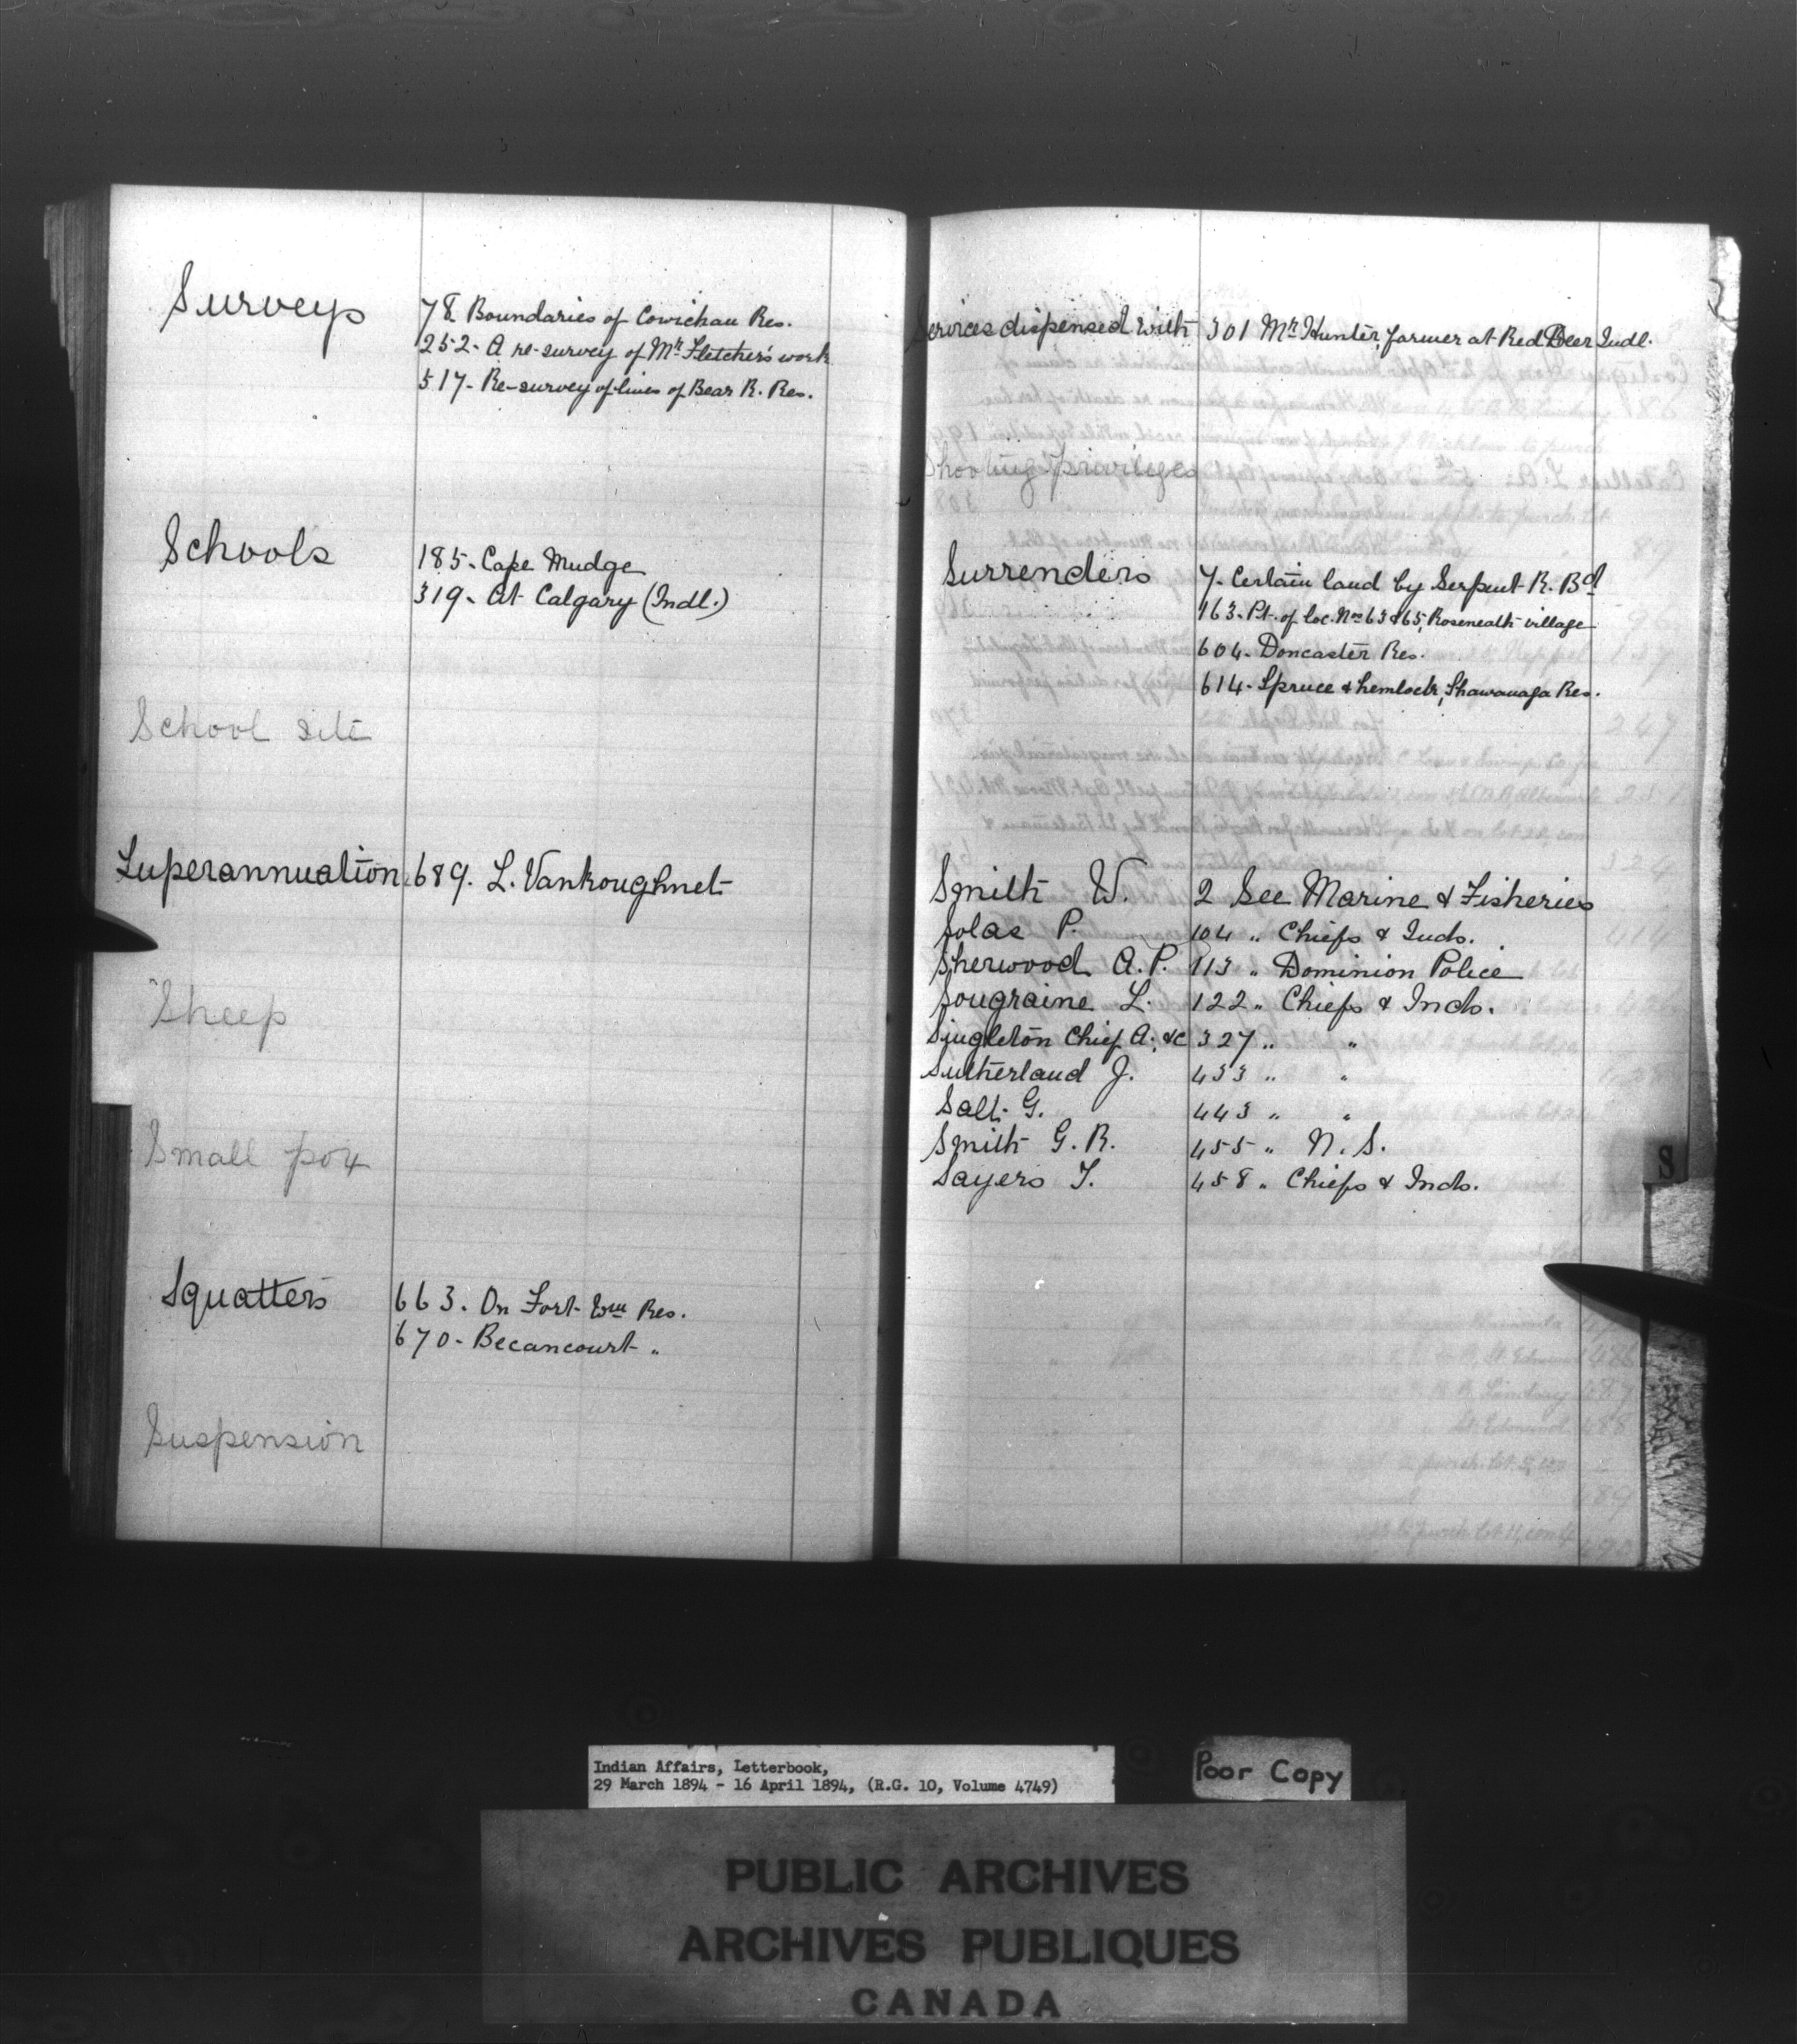 Surveys
78 Boundaries of Cowichan Res.
252- A re-survey of Mr. Fletcher's work
517- Re-survey of lines of Bear R. Res.
Schools
185- Cape Mudge
319- At Calgary (Indl.)
School site
Superannuation 689. L. Vankoughnet
Sheep
Small pox
Squatters
663. On Fort Wm Res.
670- Becancourt "
Suspension
Services dispensed with 301 Mr Hunter, farmer at Red Deer Indl.
Shooting privileges
Surrenders
7- Certain land by Serpent R. Bd
163- Pt. of loc. Nos 63 & 65, Roseneath village
604- Doncaster Res.
614- Spruce & hemlock, Shawanaga Res.
Smith W. 2 See Marine & Fisheries
Solas P. 104 " Chiefs & Inds.
Sherwood A.P. 113 " Dominion Police
Sougraine L. 122 " Chiefs & Inds.
Singleton Chief A., &c 327 " "
Sutherland J. 433 " "
Salt G. 443 " "
Smith G.R. 455 " N.S.
Sayers T. 458 " Chiefs & Inds.
S
Indian Affairs, Letterbook,
29 March 1894 - 16 April 1894, (R.G. 10, Volume 4749)
Poor Copy
PUBLIC ARCHIVES
ARCHIVES PUBLIQUES
CANADA